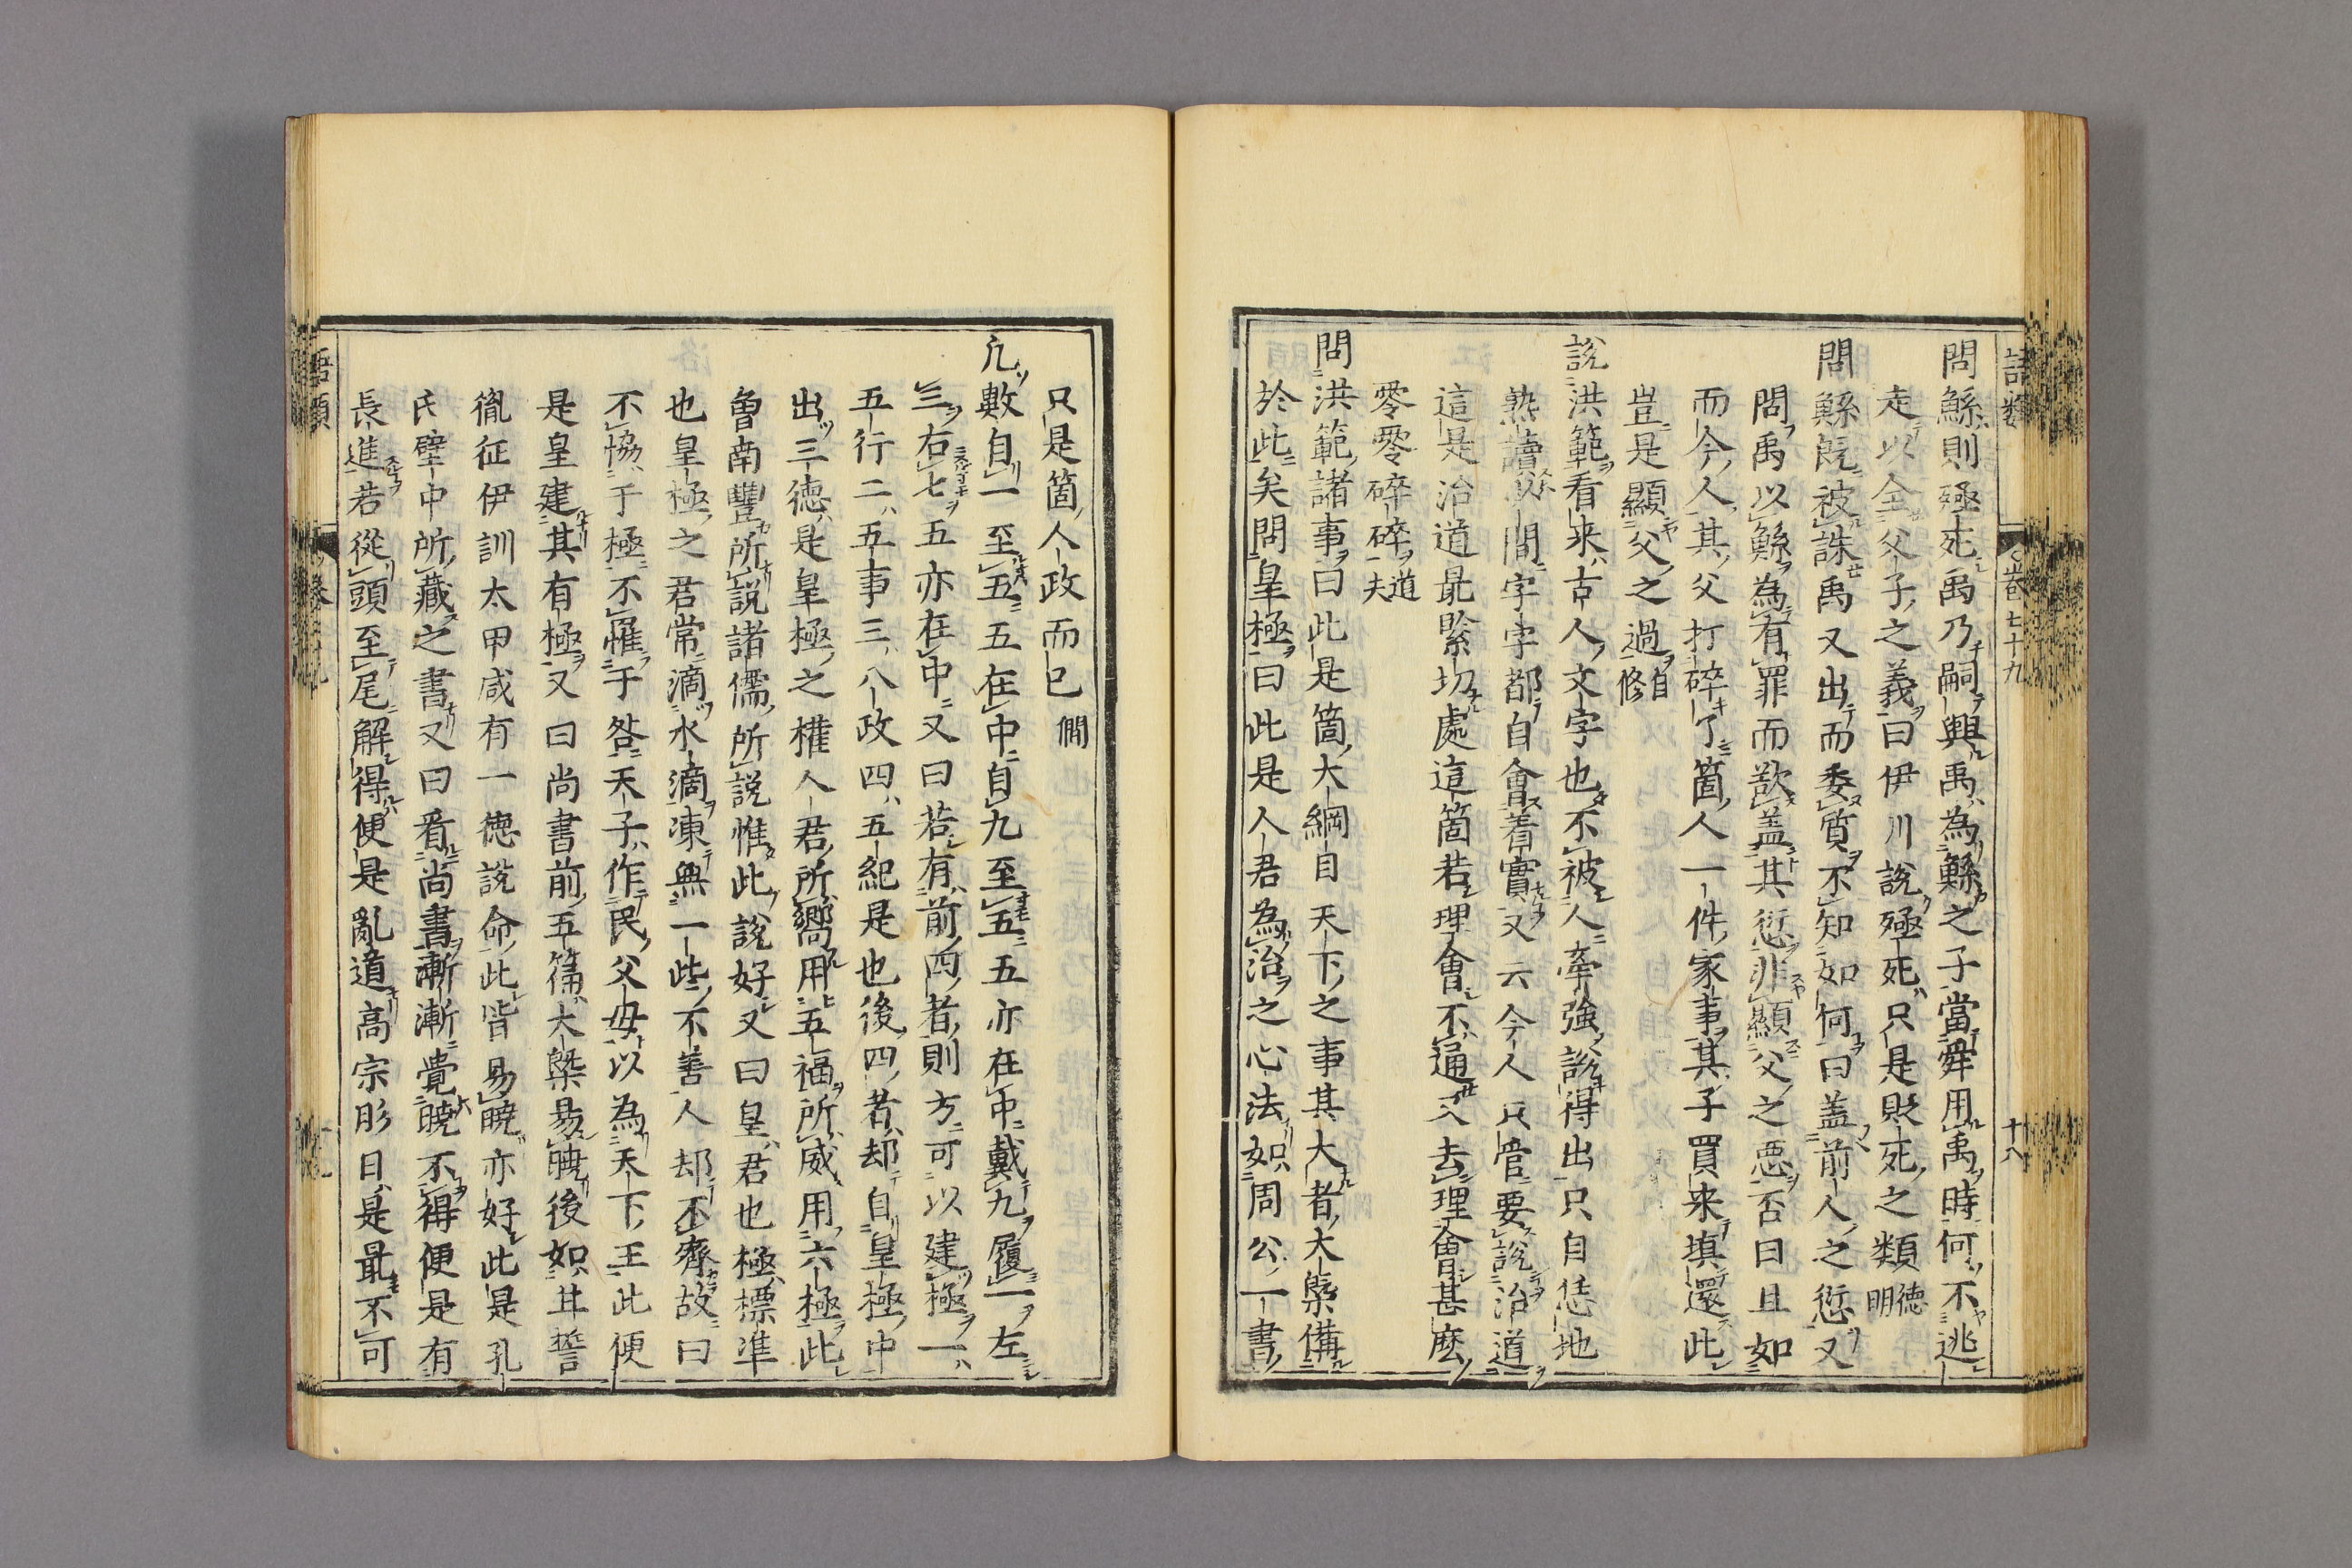 語類
卷七十九
十八
問鯀則殛死禹乃嗣興禹為鯀之子當舜用禹時何不逃
走以全父子之義曰伊川說殛死只是貶死之類 德明
問鯀旣被誅禹又出而委質不知如何曰盖前人之愆又
問禹以鯀為有罪而欲盖其愆非顯父之惡否曰且如
而今人其父打碎了箇人一件家事其子買来填還此
豈是顯父之過 自修
說洪範看来古人文字也不被人牽強說得出只自恁地
熟讀少間字字都自會着實又云今人只管要說治道
這是治道最緊切處這箇若理會不通又去理會甚麽
零零碎碎 道夫
問洪範諸事曰此是箇大綱目天下之事其大者大槩備
於此矣問皇極曰此是人君為治之心法如周公一書
只是箇八政而已 僩
凢數自一至五五在中自九至五五亦在中戴九履一左
三右七五亦在中又曰若有前四者則方可以建極一
五行二五事三八政四五紀是也後四者却自皇極中
出三德是皇極之權人君所嚮用五福所威用六極此
曾南豐所說諸儒所說惟此說好又曰皇君也極標準
也皇極之君常滴水滴凍無一些不善人却不齊故曰
不協于極不罹于咎天子作民父母以為天下王此便
是皇建其有極又曰尚書前五篇大槩易曉後如甘誓
胤征伊訓太甲咸有一德說命此皆易曉亦好此是孔
氏壁中所藏之書又曰看尚書漸漸覺曉不得便是有
長進若從頭至尾解得便是亂道高宗肜日是最不可
語類